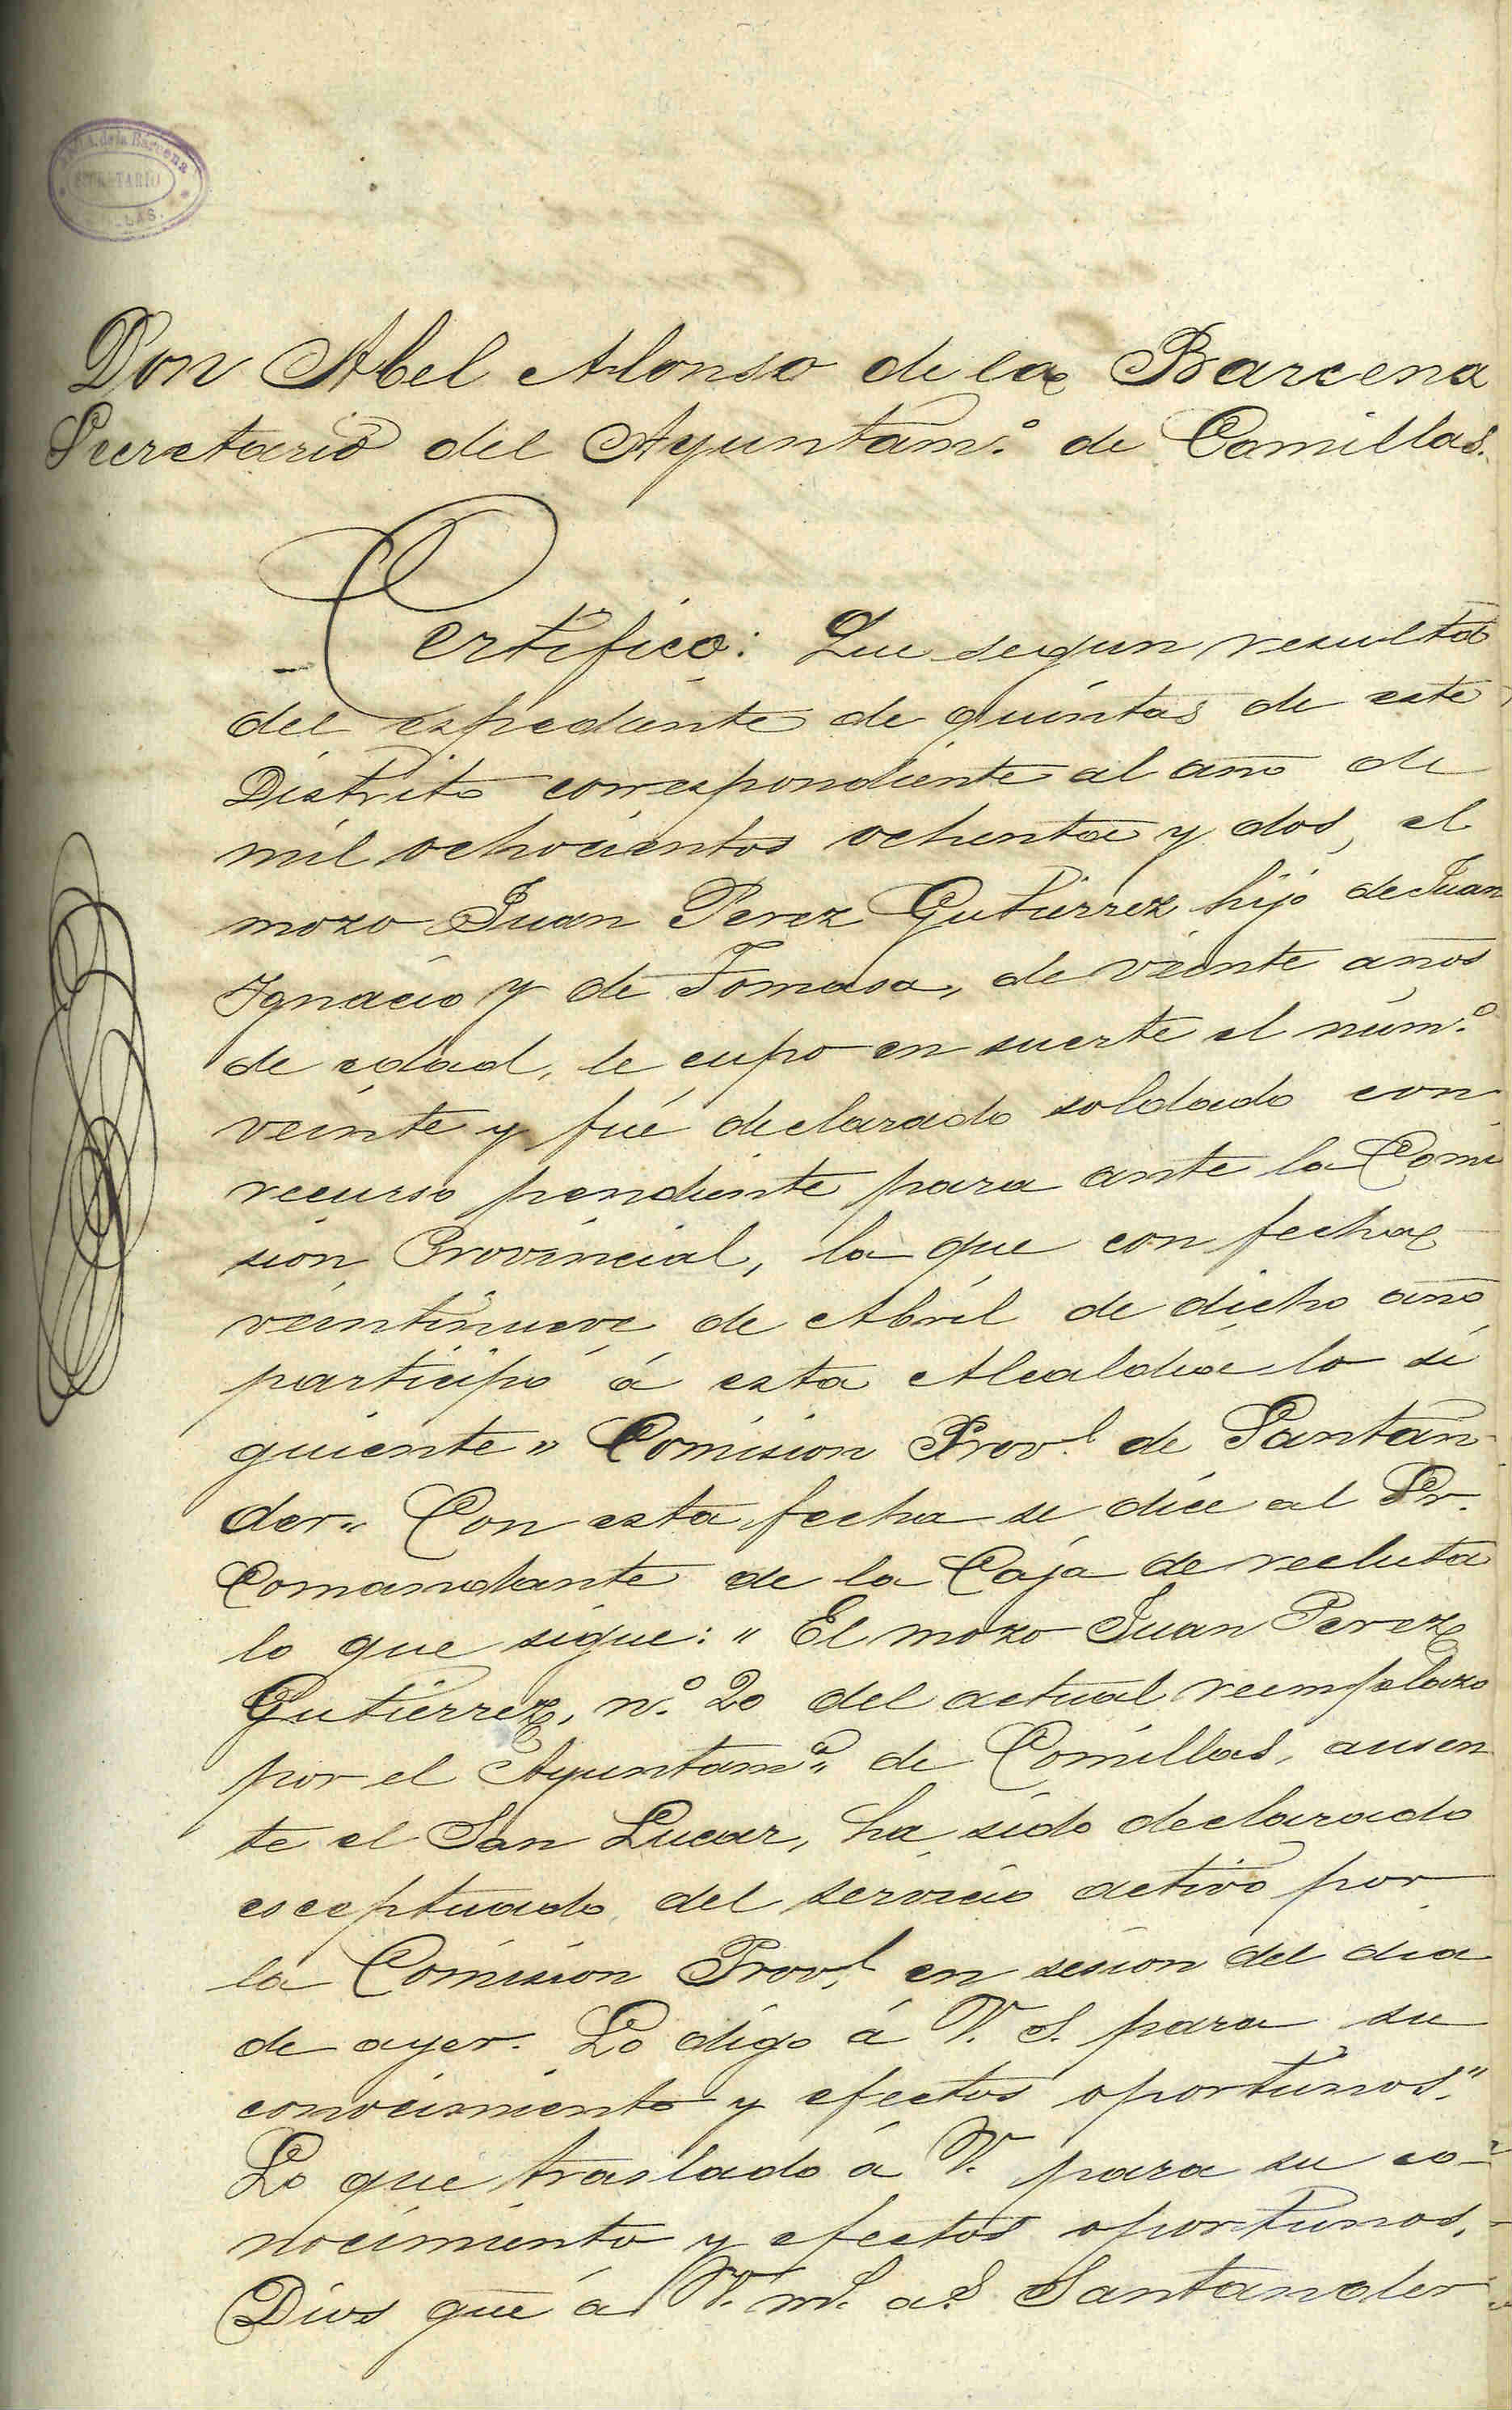 de la Barcena
SECRETARIO
LLAS.
Don Abel Alonso de la Barcena
Secretario del Ayuntam.º de Comillas.
Certifico: Que segun resulta
del espediente de quintas de este
Distrito correspondiente al año de
mil ochocientos ochenta y dos, el
mozo Juan Perez Gutierrez hijo de Juan
Ignacio y de Tomasa, de veinte años
de edad, le cupo en suerte el núm.º
veinte y fué declarado soldado con
recurso pendiente para ante la Comi
sion Provincial, la que con fecha
veintinueve de Abril de dicho año
participó á esta Alcaldia lo si
guiente " Comision Prov.l de Santan
der " Con esta fecha se dice al Sr.
Comandante de la Caja de recluta
lo que sigue: " El mozo Juan Perez
Gutierrez, n.º 20 del actual reemplazo
por el Ayuntam.º de Comillas, ausen
te el San Lucar, ha sido declarado
esceptuado del servicio activo por
la Comision Prov.l en sesion del dia
de ayer. Lo digo á V. S. para su
conocimiento y efectos oportunos."
Lo que traslado á V. para su co-
nocimiento y efectos oportunos.
Dios gue á V. m.s a.s Santander